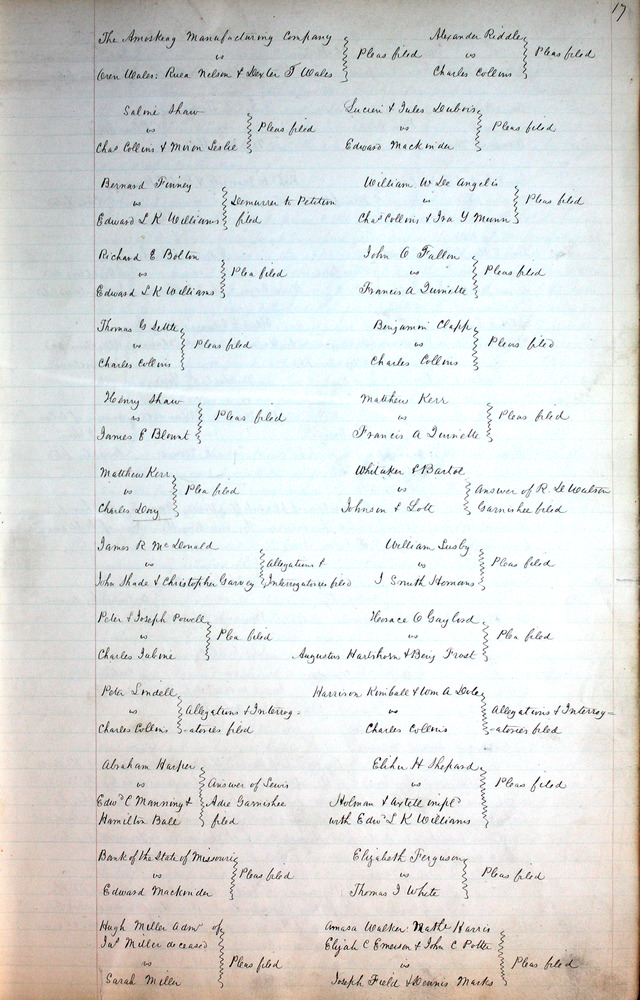 17
The Amoskeag Manufacturing Company
vs
Oren Wales: Ruea Nelson & Dexter T Wales
Pleas filed
Alexander Riddle
vs
Charles Collins
Pleas filed
Salone Shaw
vs
Chas Collins & Miron Leslie
Pleas filed
Lucien & Jules Dubois
vs
Edward Mackinder
Pleas filed
Bernard Finney
vs
Edward L K Williams
Demurrer to Petition
filed
William W De Angelis
vs
Chas Collins & Ira Y Munn
Pleas filed
Richard E Bolton
vs
Edward L K Williams
Plea filed
John O Fallon
vs
Francis A
Pleas filed
Thomas G Settle
vs
Charles Collins
Pleas filed
Benjamin Clapp
vs
Charles Collins
Pleas filed
Henry Shaw
vs
James E Blount
Pleas filed
Matthew Kerr
vs
Francis A
Pleas filed
Matthew Kerr
vs
Charles
Plea filed
Whitaker & Bartol
vs
Johnson & Lott
Answer of R.
Garnishee filed
James R McDonald
vs
John Shade & Christopher Garvey
Allegations &
Interrogatories filed
William Lusby
vs
I Smith Homans
Pleas filed
Peter & Joseph Powell
vs
Charles
Plea filed
Horace O Gaylord
vs
Augustus Hartshorn & Benj Frost
Plea filed
Peter Lindell
vs
Charles Collins
Allegations & Interrog=
-atories filed
Harrison Kimball & Wm A
vs
Charles Collins
Allegations & Interrog=
-atories filed
Abraham Harper
vs
Edwd C Manning &
Hamilton Ball
Answer of Lewis
Adie Garnishee
filed
Elihu H Shepard
vs
Holman & Axtell impld
with Edwd L K Williams
Pleas filed
Bank of the State of Missouri
vs
Edward Mackinder
Pleas filed
Elizabeth Ferguson
vs
Thomas J White
Pleas filed
Hugh Miller Admr of
Miller deceased
vs
Sarah Miller
Pleas filed
Amasa Walker: Nathl Harris
Elijah C Emerson & John C Potter
vs
Joseph Field & Dennis Marks
Pleas filed